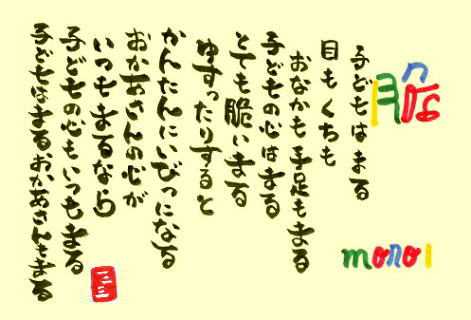 脆
moroi
子どもはまる
目もくちも
おなかも手足もまる
子どもの心はまる
とても脆いまる
ゆすったりすると
かんたんにいびつになる
おかあさんの心が
いつもまるなら
子どもの心もいつもまる
子どもはまるおかあさんもまる